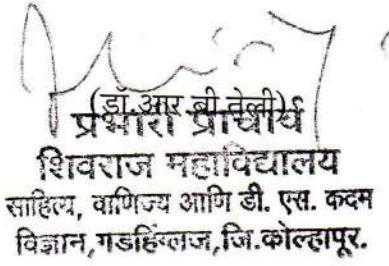 (डॉ.आर बी.तेली)
प्रभारी प्राचार्य
शिवराज महाविद्यालय
साहित्य, वाणिज्य आणि डी. एस. कदम
विज्ञान,गडहिंग्लज,जि.कोल्हापूर.